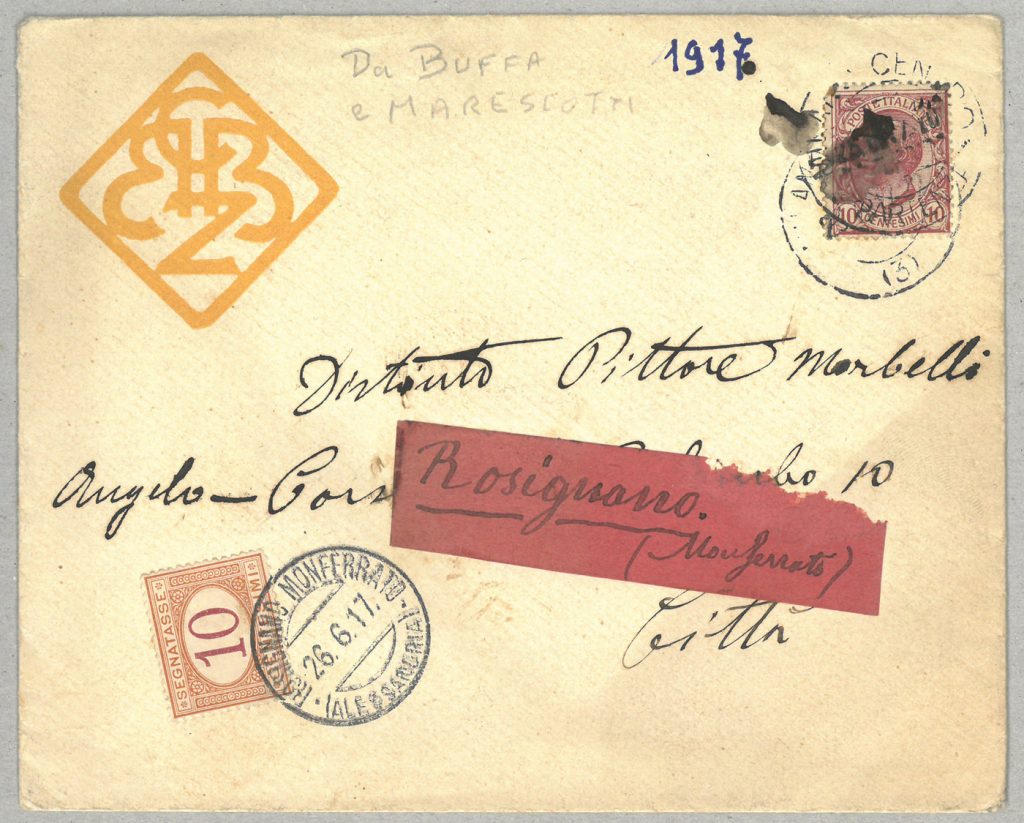 Da BUFFA
e MARESCOTTI
1917
CEN
POSTE ITALIANE
10 CENTESIMI 10
(3)
Distinto Pittore Morbelli
Angelo - Cors 10
Rosignano.
(Monferrato)
Città
SEGNATASSE
10
ROSIGNANO MONFERRATO
26.6.17.
(ALESSANDRIA)